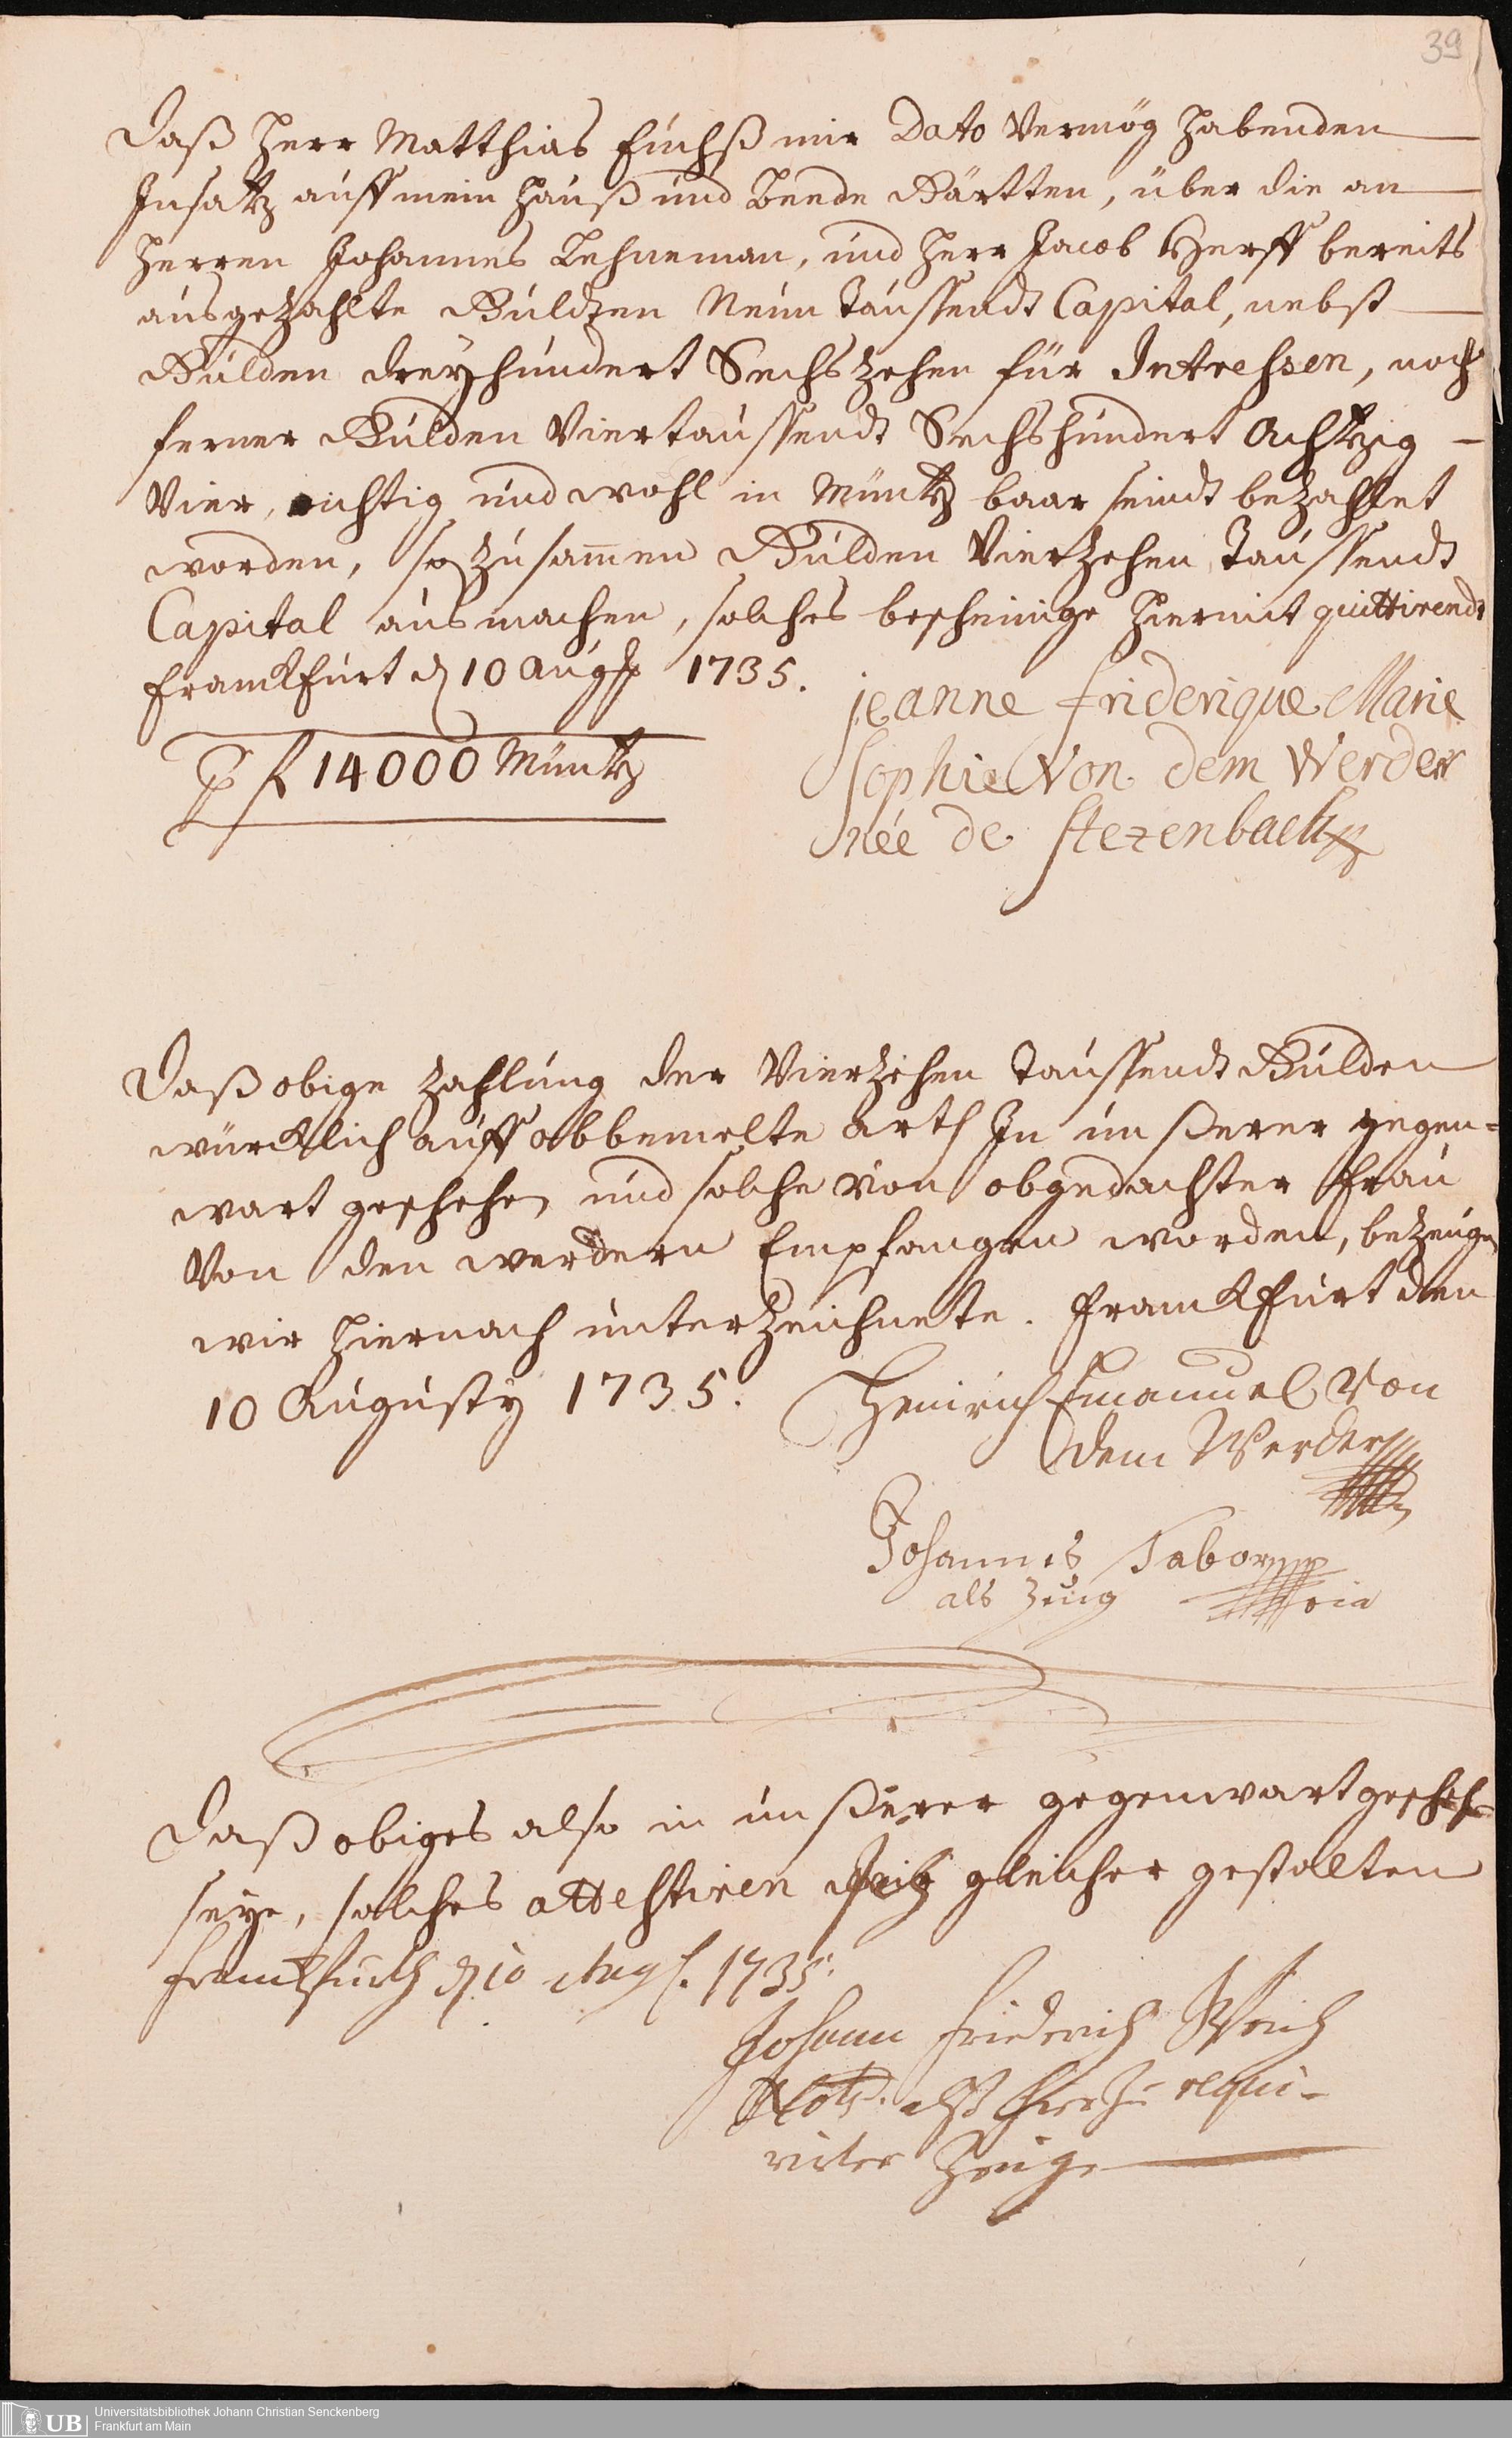 39
Daß Herr Matthias Fuchß mir Dato Vermög habenden
Insatz auff mein Hauß und beede Gärtten, über die an
Herren Johannes Lehneman, und Herr Jacob Herff bereits
ausgezahlte Gulden Neun Taussendt Capital, nebst
Gulden dreyhundert Sechszehen für Intressen, noch
ferner Gulden Viertaussendt Sechshundert Achtzig
Vier, richtig und wohl in Müntz baar seindt bezahlet
worden, so zusam̄en Gulden Vierzehen Taussendt
Capital ausmachen, solches bescheinige hiermit quittirendt
Franckfurt d 10 Augst 1735.
jeanne friderique Marie
Sophie Von dem Werder
née de Stezenbach
f 14000 Müntz
Daß obige Zahlung der Vierzehen Taussendt Gulden
würcklich auff obbemelte arth In unßerer gegen=
wart geschehen und solche von obgedachter Frau
Von den werdern Empfangen worden, bezeugen
wir hiernach unterzeichnete. Franckfurt den
10 Augusty 1735.
Heinrich Emanuel Von
dem Werder
Johannes Tabor
als Zeug
Daß obiges also in unßerer gegenwart geschehen
seye, solches attestiren gleicher gestalten
Franckfurth d 10 Aug. 1735.
Johann Friederich
Nots. alß hierzu requi-
rirter Zeuge
UB Universitätsbibliothek Johann Christian Senckenberg
Frankfurt am Main